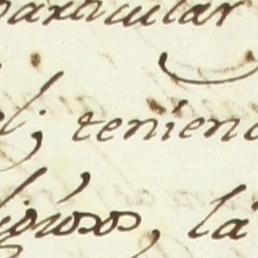 particular
l; tenien
igiosos, la